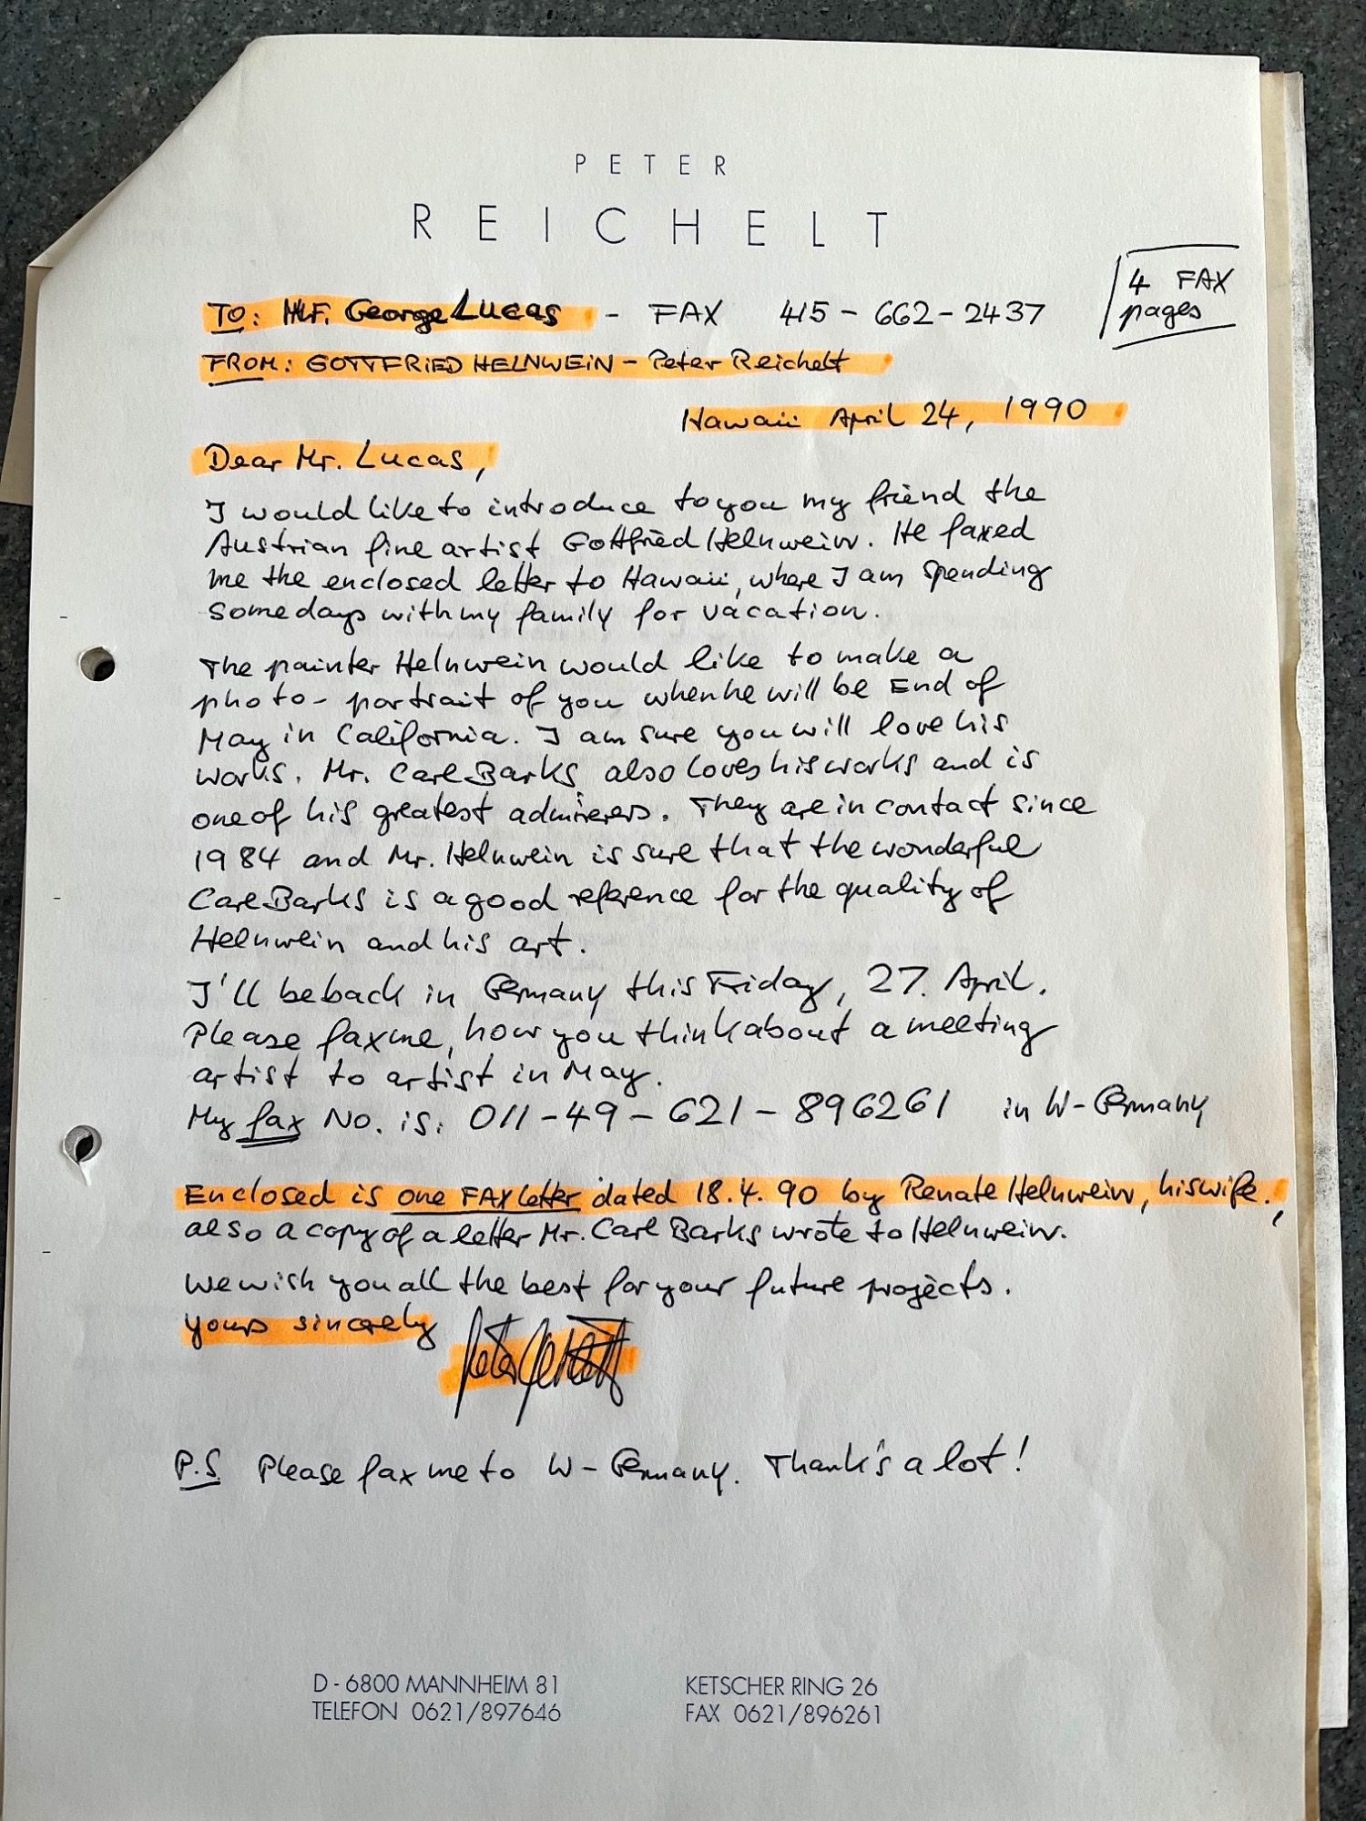 PETER
REICHELT
4 FAX
pages
TO: Mr. George Lucas - FAX 415-662-2437
FROM: GOTTFRIED HELNWEIN - Peter Reichelt
Hawaii April 24, 1990
Dear Mr. Lucas,
I would like to introduce to you my friend the
Austrian fine artist Gottfried Helnwein. He faxed
me the enclosed letter to Hawaii, where I am spending
some days with my family for vacation.
The painter Helnwein would like to make a
photo-portrait of you when he will be End of
May in California. I am sure you will love his
works. Mr. Carl Barks also loves his works and is
one of his greatest admirerers. They are in contact since
1984 and Mr. Helnwein is sure that the wonderful
Carl Barks is a good reference for the quality of
Helnwein and his art.
I'll be back in Germany this Friday, 27. April.
Please fax me, how you think about a meeting
artist to artist in May.
My fax No. is: 011-49-621-896261 in W-Germany
Enclosed is one FAX letter dated 18.4.90 by Renate Helnwein, his wife.,
also a copy of a letter Mr. Carl Barks wrote to Helnwein.
We wish you all the best for your future projects.
yours sincerely Peter Reichelt
P.S Please fax me to W-Germany. Thank's a lot!
D - 6800 MANNHEIM 81 KETSCHER RING 26
TELEFON 0621/897646 FAX 0621/896261